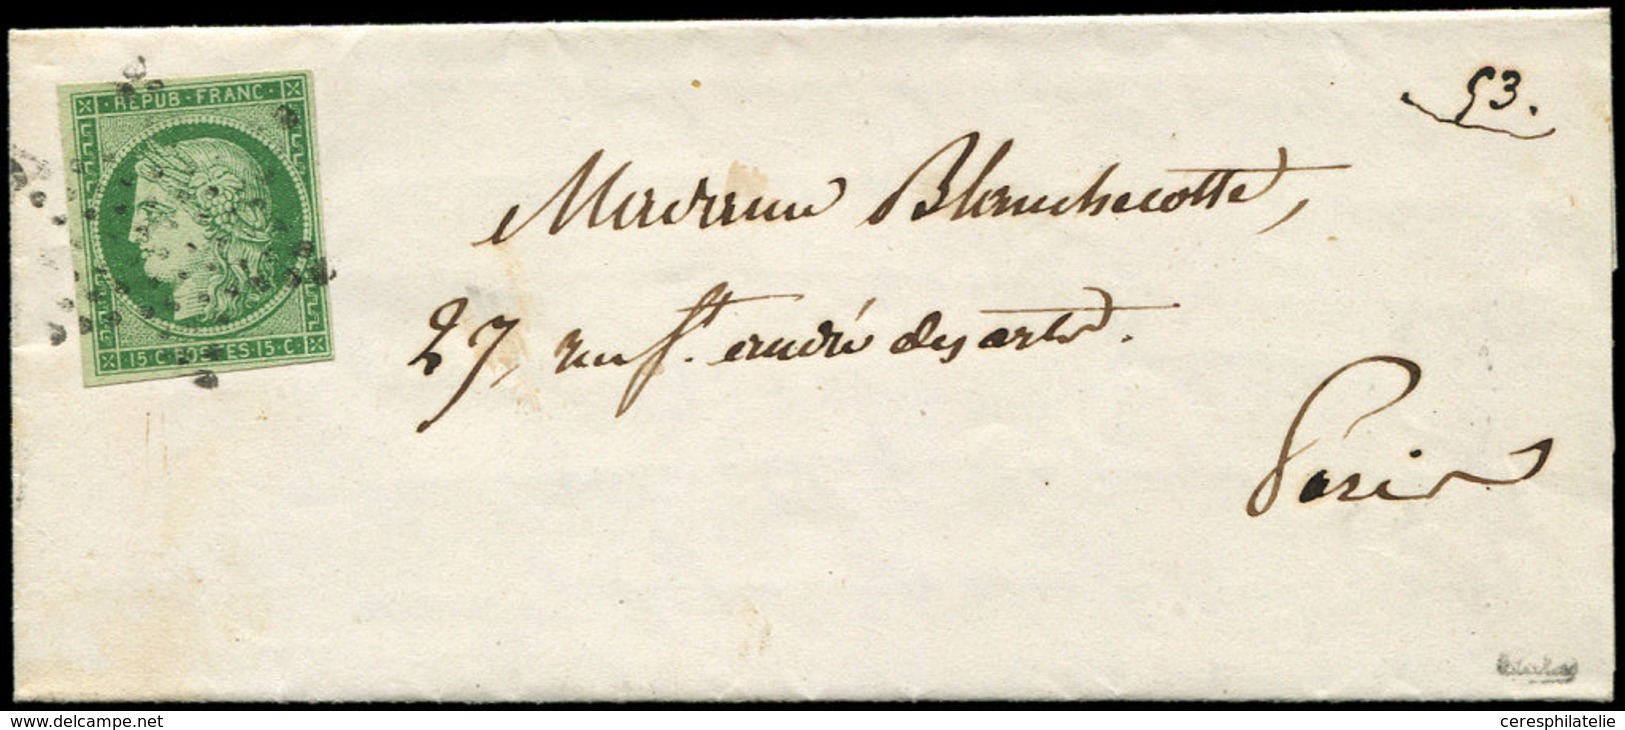 REPUB·FRANC·
15·C·POSTES·15·C·
53.
Madame Blanchecotte,
27, rue St. andré des arts.
Paris
delcampe.net
ceresphilatelie